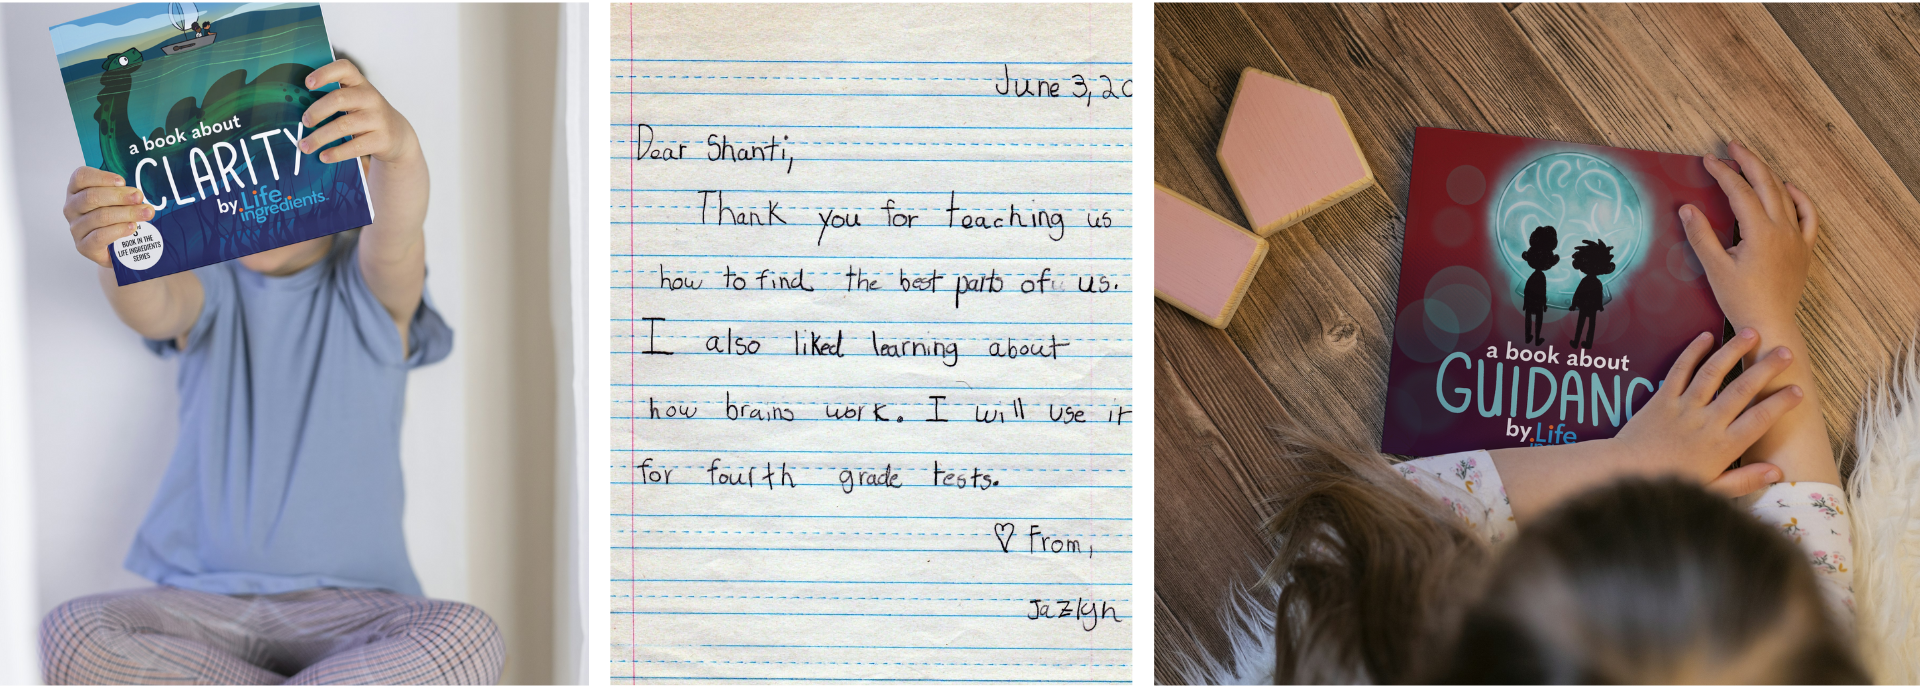 a book about
CLARITY
by Life
ingredients
BOOK IN THE
LIFE INGREDIENTS
SERIES
June 3, 20
Dear Shanti,
Thank you for teaching us
how to find the best parts of us.
I also liked learning about
how brains work. I will use it
for fourth grade tests.
♡ From,
Jazlyn
a book about
GUIDANC
by Life